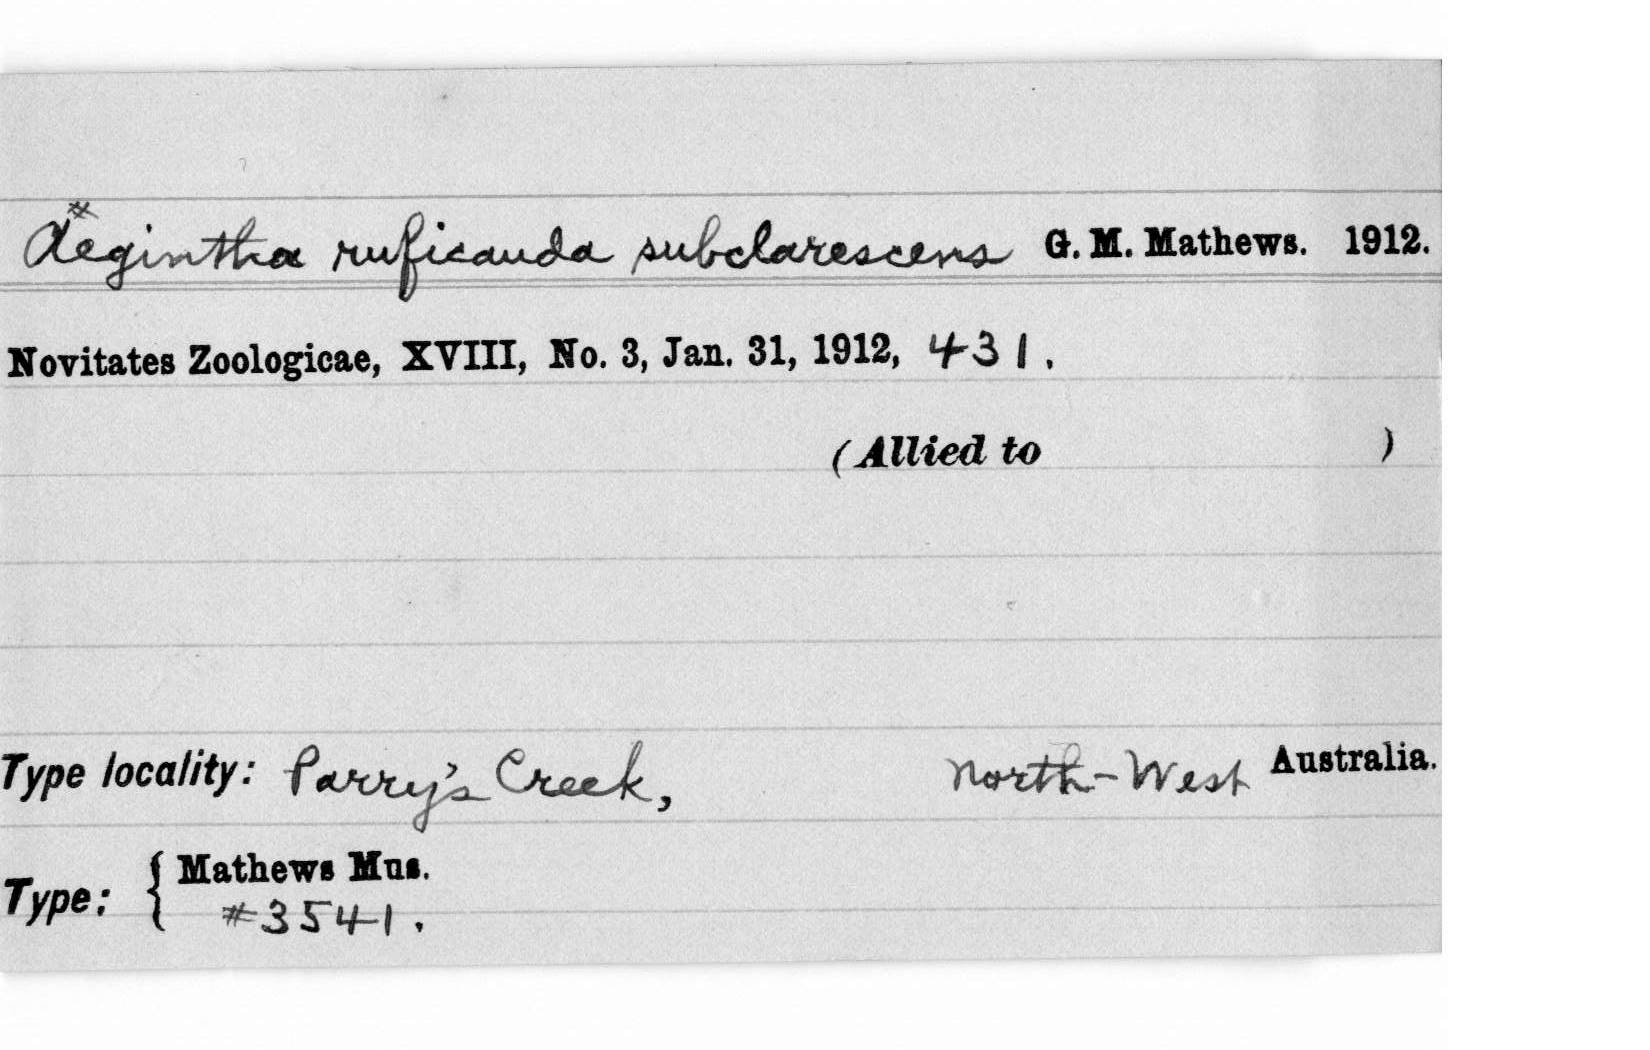 #
Aegintha ruficauda subclarescens G. M. Mathews. 1912.
Novitates Zoologicae, XVIII, No. 3, Jan. 31, 1912, 431.
(Allied to )
Type locality: Parry's Creek, North-West Australia.
Type: { Mathews Mus.
#3541.